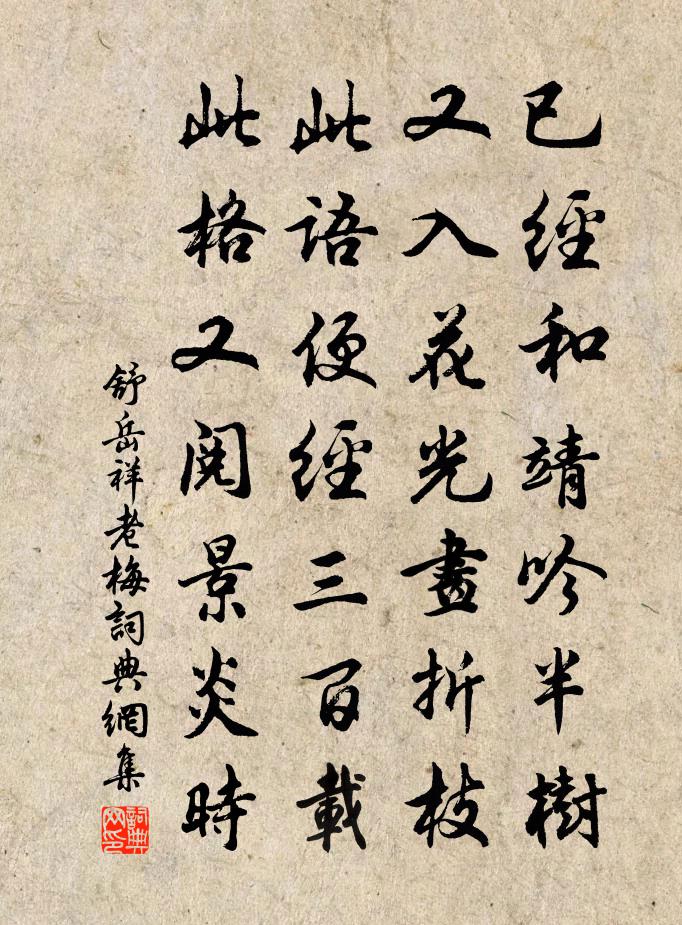 已經和靖吟半樹
又入花光畫折枝
此語便經三百載
此格又閱景炎時
舒岳祥老梅詞典網集
詞典網印